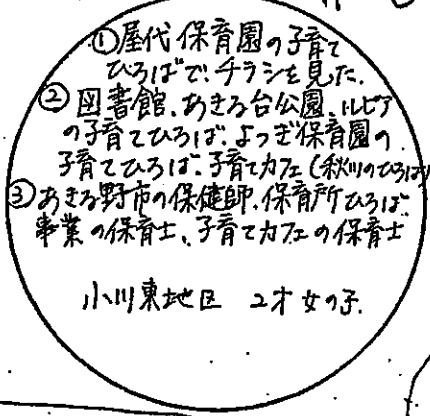 ①屋代保育園の子育て
ひろばで、チラシを見た。
②図書館、あきる台公園、ルピア
の子育てひろば、よつぎ保育園の
子育てひろば、子育てカフェ(秋川のひろば)
③あきる野市の保健師、保育所ひろば
事業の保育士、子育てカフェの保育士
小川東地区 2才女の子.